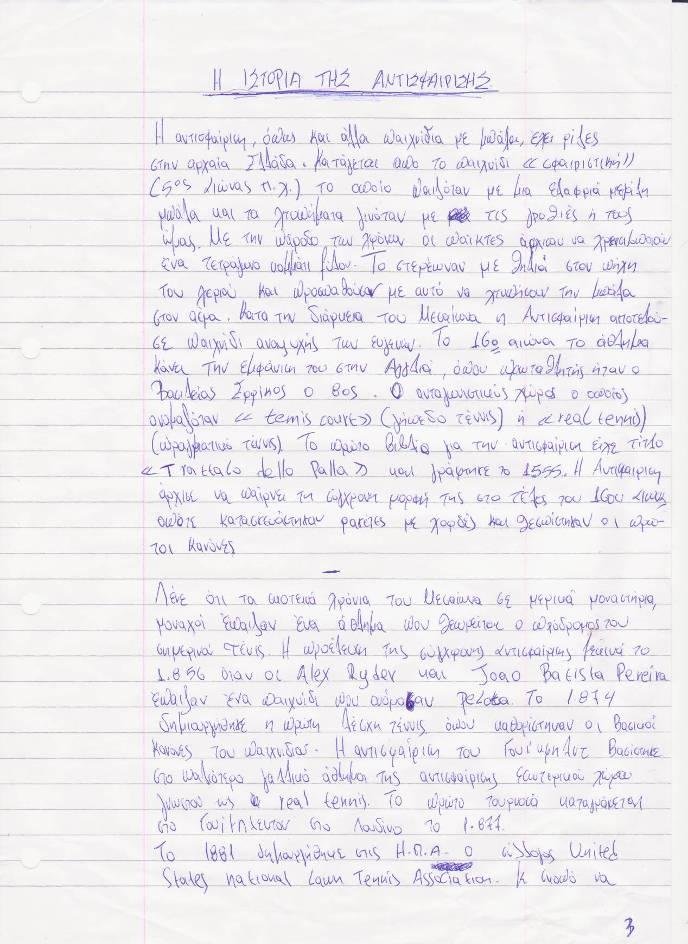 Η ΙΣΤΟΡΙΑ ΤΗΣ ΑΝΤΙΣΦΑΙΡΙΣΗΣ
Η αντισφαίριση, όπως και άλλα παιχνίδια με μπάλα, έχει ρίζες
στην αρχαία Ελλάδα. Κατάγεται από το παιχνίδι «σφαιριστική»
(5ος αιώνας π.χ.) το οποίο παιζόταν με μια ελαφριά μεγάλη
μπάλα και τα χτυπήματα γινόταν με τις γροθιές ή τους
ώμους. Με την πάροδο των χρόνων οι παίκτες άρχισαν να χρησιμοποιούν
ένα τετράγωνο κομμάτι ξύλου. Το στερέωναν με θηλιά στον πήχη
του χεριού και προσπαθούσαν με αυτό να χτυπήσουν την μπάλα
στον αέρα. Κατά την διάρκεια του Μεσαίωνα η Αντισφαίριση αποτελού-
σε παιχνίδι αναψυχής των ευγενών. Το 16ο αιώνα το άθλημα
κάνει την εμφάνιση του στην Αγγλία, όπου πρωταθλητής ήταν ο
Βασιλείας Ερρίκος ο 8ος. Ο ανταγωνιστικός χώρος ο οποίος
ονομαζόταν «tennis court» (γήπεδο τέννις) ή «real tennis»
(πραγματικό τέννις) Το πρώτο βιβλίο για την αντισφαίριση είχε τίτλο
«Trattato della Palla» και γράφτηκε το 1555. Η Αντισφαίριση
άρχισε να παίρνει τη σύγχρονη μορφή της στο τέλος του 16ου αιώνα
οπότε κατασκευάστηκαν ρακέτες με χορδές και θεσπίστηκαν οι πρώ-
τοι κανόνες
Λένε ότι τα σκοτεινά χρόνια του Μεσαίωνα σε μερικά μοναστήρια,
μοναχοί έπαιζαν ένα άθλημα που θεωρείται ο πρόδρομος του
σημερινού τένις. Η προέλευση της σύγχρονης αντισφαίρισης ξεκινά το
1.856 όταν οι Alex Ryder και Joao Batista Pereira
έπαιζαν ένα παιχνίδι που ονόμασαν pelota. Το 1874
δημιουργήθηκε η πρώτη λέσχη τέννις όπου καθορίστηκαν οι βασικοί
κανόνες του παιχνιδιού. Η αντισφαίριση του Γουίνκφηλντ βασίστηκε
στο παλιότερο γαλλικό άθλημα της αντισφαίρισης εσωτερικού χώρου
γνωστού ως real tennis. Το πρώτο τουρνουά καταγράφεται
στο Γουίμπλεντον στο Λονδίνο το 1.877.
Το 1881 δημιουργήθηκε στις Η.Π.Α. ο σύλλογος United
States national Lawn Tennis Association. Με σκοπό να
3